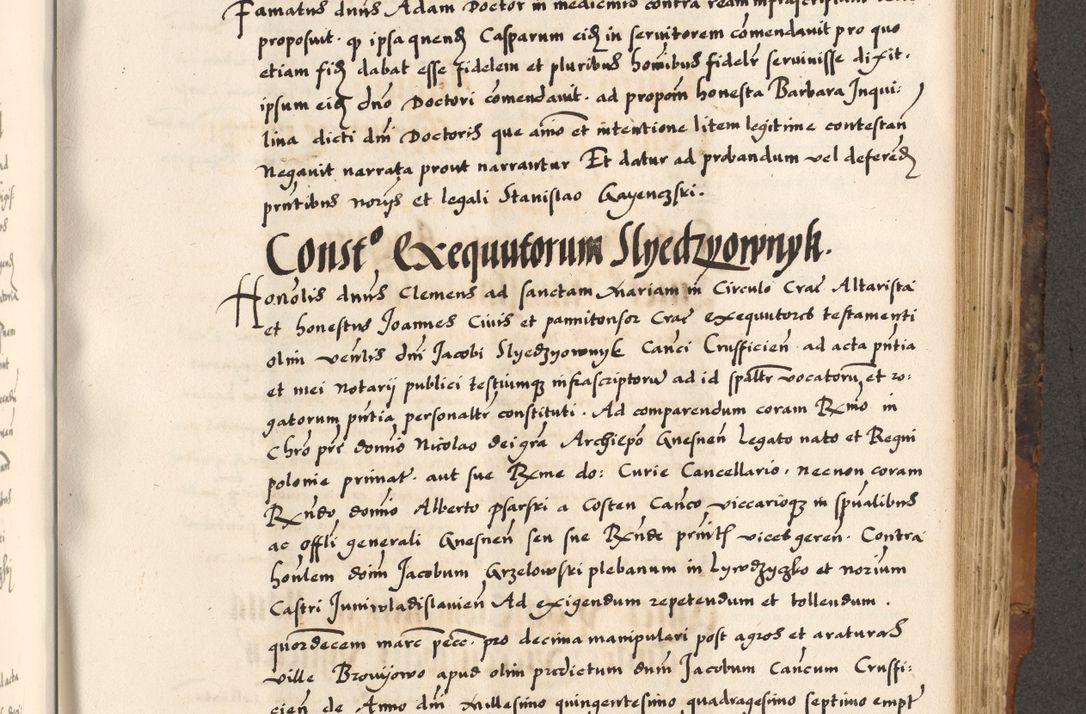 Famatus dnus Adam Doctor in medicinis contra ream infrascriptam
proposuit · qp ipsa quendz Casparum eidz in servitorem comendavit pro quo
etiam fidz dabat esse fidelem et pluribus hoibus fidelr serviuisse dixit ·
ipsum eidz dno Doctori comendavit · ad propom honesta Barbara Inqui:
lina dicti dni Doctoris que aio et intentione litem legitime contestan
Negavit narrata prout narrantur Et datur ad probandum vel deferendz
pntibus noriis et legali Stanislao Gayenczski ·
Constº, Exequutorum Slyedzyownyk.
Honolis dnus Clemens ad sanctam Mariam in Circulo Crac Altarista
et honestus Joannes Civis et pannitonsor Crac exequutores testamenti
olim venlis dni Jacobi Slyedzyownyk Canci Crufficien · ad acta pntia
et mei Notarij publici testiumqz infrascriptoru ad id spaltr vocatoru, et ro:
gatorum pntia personaltr constituti · Ad comparendum coram Rmo in
Chro pre domino Nicolao dei gra Archiepo Gnesnen Legato nato et Regni
polonie primate · aut sue Rme do: Curie Cancellario · necnon coram
Rndo domino Alberto psarski a Costen Canco viccarioqz in spualibus
ac offli generali Gnesnen seu sue Rnde pnitl vices geren · Contra
honlem doim Jacobum Grzelowski plebanum in Lywdzyczko et norium
Castri Juniwladislavien Ad exigendum repetendum et tollendum ·
quordecem marc pecc · pro decima manipulari post agros et araturas
ville Brouijowo apud olim predictum dnm Jacobum Cancum Cruffi:
cien de Anno dni Millesimo quingentesimo quadragesimo septimo empt